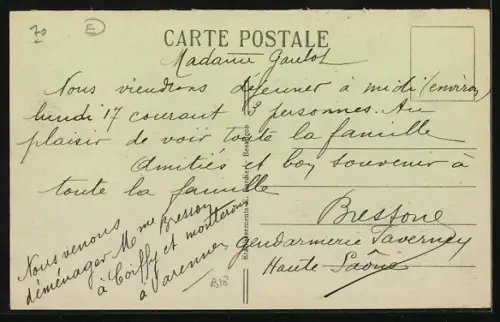 70
E
CARTE POSTALE
Madame Gaulot
Nous viendrons déjeuner à midi (environ)
lundi 17 courant 3 personnes. Au
plaisir de voir toute la famille
Amitiés et bon souvenir à
toute la famille
Bressone
Gendarmerie Faverney
Haute-Saône
Nous venons
déménager Mme Bresson
à Coiffy et monterons
à Varennes
B18